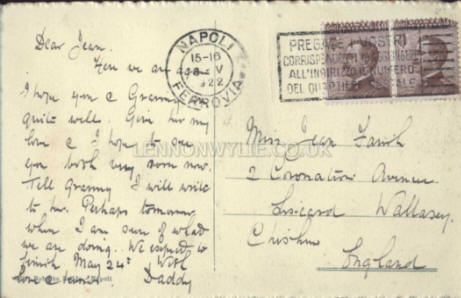 Dear Jean.
Here we are again
I hope you & Granny
quite well. Give her my
love & I hope to see
you both very soon now.
Tell Granny I will write
to her. Perhaps tomorrow
when I am sure of what
we are doing. We expect to
finish May 24th With
love &
Daddy
NAPOLI
15-16
V
22
FERROVIA
PREGATE I VOSTRI
CORRISPONDENTI
ALL'INDIRIZZO IL NUMERO
DEL QUARTIERE POSTALE
Miss Jean
2 Coronation Avenue
Liscard Wallasey.
Cheshire
England
LENNONWYLIE.CO.UK